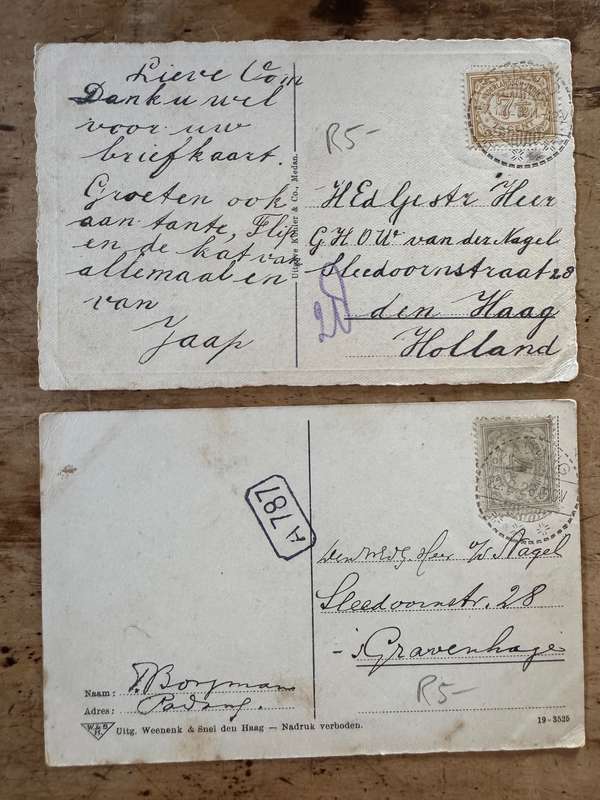 Lieve Com
Dank u wel
voor uw
briefkaart.
Groeten ook
aan tante, Flip
en de kat van
allemaal en
van
Jaap
Uitgave Köhler & Co., Medan.
R5-
7½
HEdGestr Heer
G.H.O.W. van der Nagel
Sleedoornstraat 28
den Haag
Holland
A 787
Heer v/d Nagel
Sleedoornstr. 28
's Gravenhage
R5-
Naam: Borgman
Adres: Padang.
Uitg. Weenenk & Snel den Haag — Nadruk verboden.
19-3525